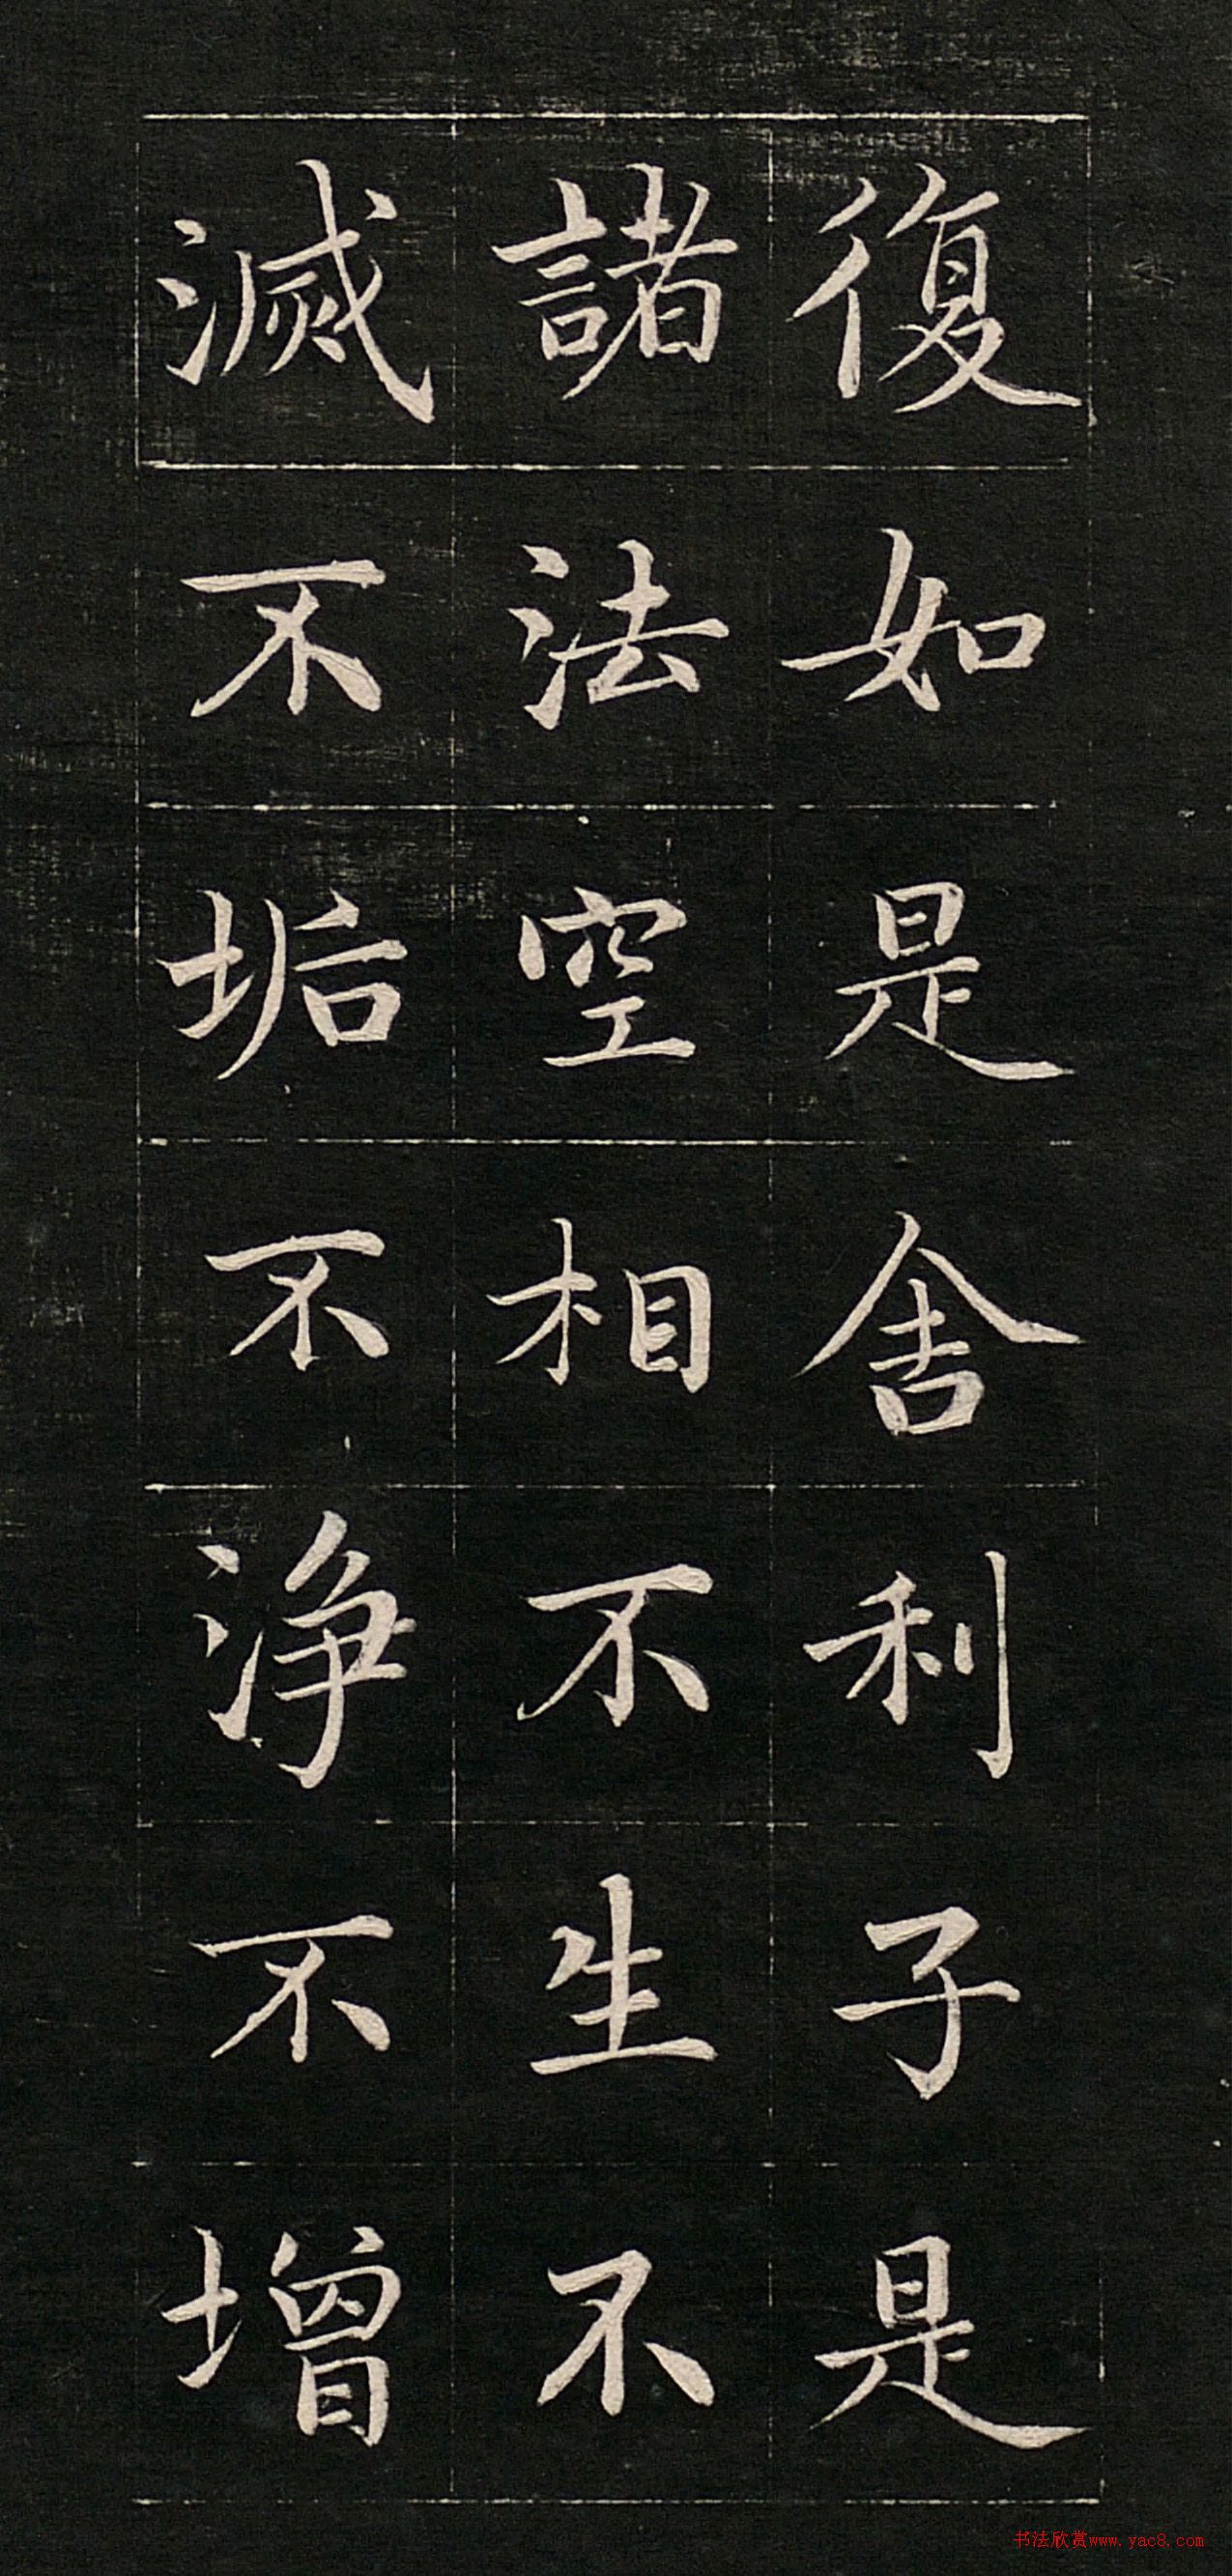 復如是舍利子是
諸法空相不生不
滅不垢不淨不增
书法欣赏www.yac8.com